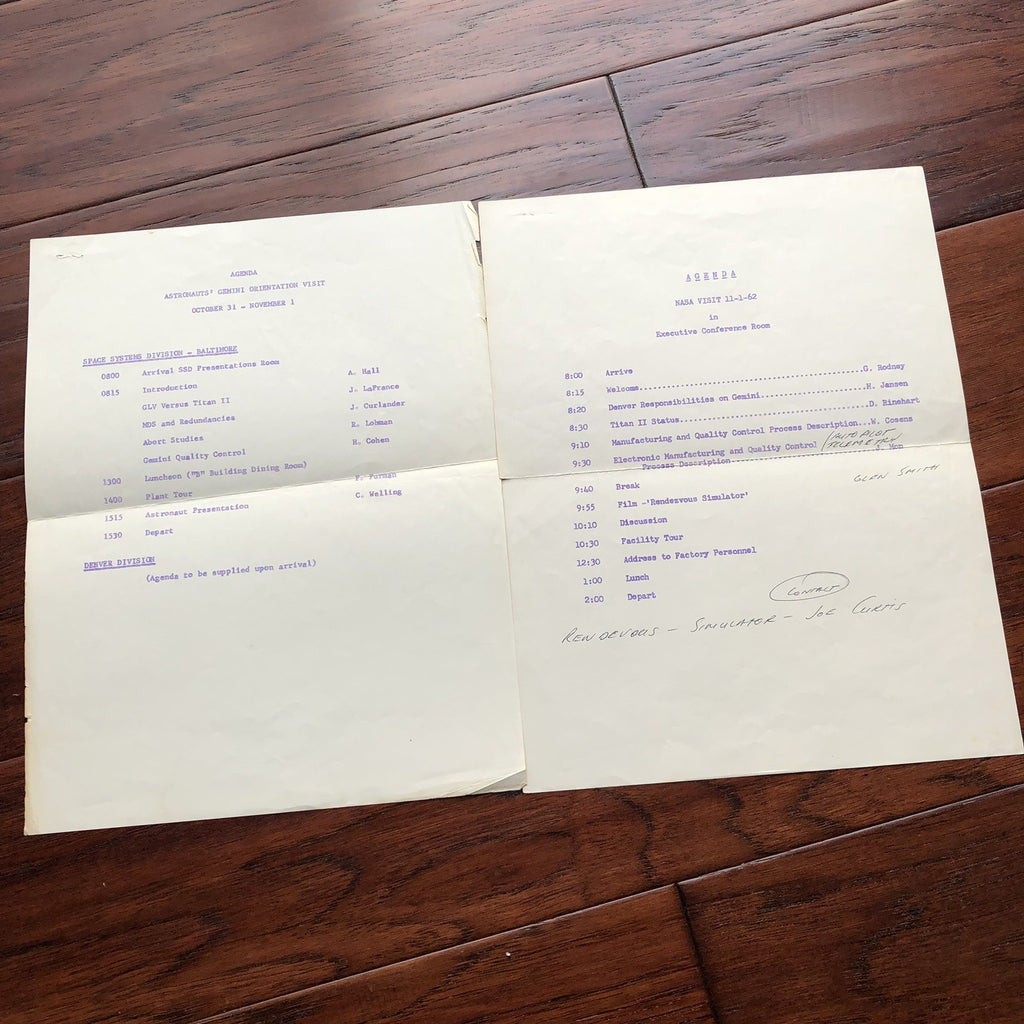 AGENDA
ASTRONAUTS' GEMINI ORIENTATION VISIT
OCTOBER 31 - NOVEMBER 1
SPACE SYSTEMS DIVISION - BALTIMORE
0800 Arrival SSD Presentations Room
0815 Introduction A. Hall
GLV Versus Titan II J. LaFrance
MDS and Redundancies J. Curlander
Abort Studies R. Lohman
Gemini Quality Control H. Cohen
1300 Luncheon ("B" Building Dining Room)
1400 Plant Tour F. Furman
1515 Astronaut Presentation C. Welling
1530 Depart
DENVER DIVISION
(Agenda to be supplied upon arrival)
A G E N D A
NASA VISIT 11-1-62
in
Executive Conference Room
8:00 Arrive
8:15 Welcome........................................G. Rodney
8:20 Denver Responsibilities on Gemini....................H. Jansen
8:30 Titan II Status....................................D. Rinehart
9:10 Manufacturing and Quality Control Process Description...W. Cosens
9:30 Electronic Manufacturing and Quality Control / AUTOPILOT
Process Description TELEMETRY J. Hop
GLEN SMITH
9:40 Break
9:55 Film -'Rendezvous Simulator'
10:10 Discussion
10:30 Facility Tour
12:30 Address to Factory Personnel
1:00 Lunch
2:00 Depart
CONTACT
RENDEVOUS - SIMULATOR - JOE CURTIS